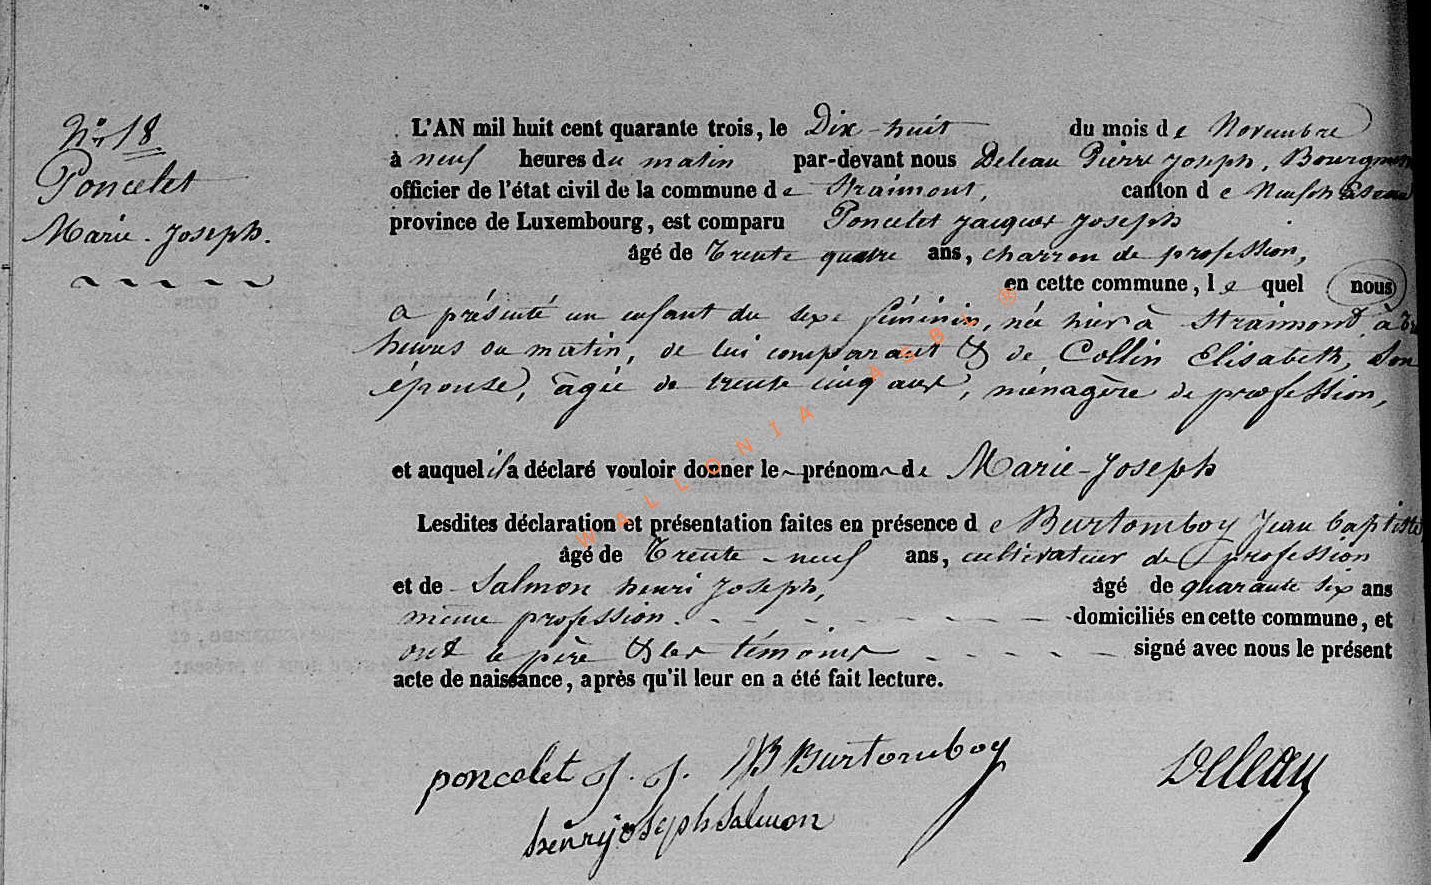 N° 18
Poncelet
Marie-Joseph.
L'AN mil huit cent quarante trois, le Dix-huit du mois de Novembre
à neuf heures du matin par-devant nous Deleau Pierre Joseph, Bourgmestre
officier de l'état civil de la commune de Straimont, canton de Neufchateau
province de Luxembourg, est comparu Poncelet Jacques Joseph
âgé de Trente quatre ans, charron de profession,
en cette commune, le quel nous
a présenté un enfant du sexe féminin, née hier à Straimont, à
heures du matin, de lui comparant & de Collin Elisabeth, son
épouse, âgée de trente cinq ans, ménagère de profession,
et auquel il a déclaré vouloir donner le prénom de Marie-Joseph
Lesdites déclaration et présentation faites en présence de Burtomboy Jean baptiste
âgé de Trente-neuf ans, cultivateur de profession
et de Salmon henri Joseph, âgé de quarante six ans
même profession. domiciliés en cette commune, et
ont le père & les témoins signé avec nous le présent
acte de naissance, après qu'il leur en a été fait lecture.
poncelet J. J. JB Burtomboy Deleau
henry joseph Salmon
WALLONIA ASBL ®